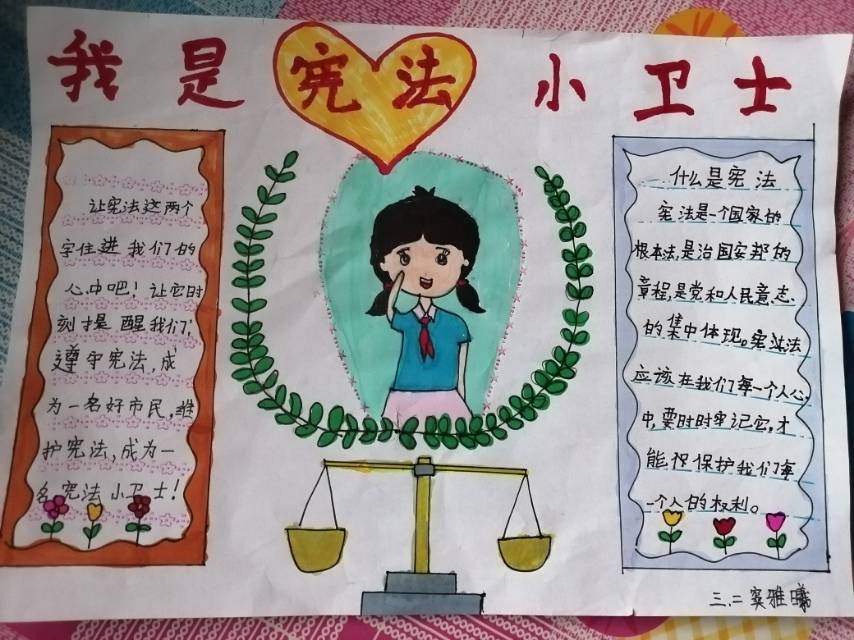 我是宪法小卫士
让宪法这两个
字住进我们的
心中吧！让它时
刻提醒我们，
遵守宪法，成
为一名好市民，维
护宪法，成为一
名宪法小卫士！
什么是宪法
宪法是一个国家的
根本法，是治国安邦的
章程，是党和人民意志
的集中体现。宪法
应该在我们每一个人心
中，要时时牢记它，才
能保护我们每
一个人的权利。
三.二 窦雅曦